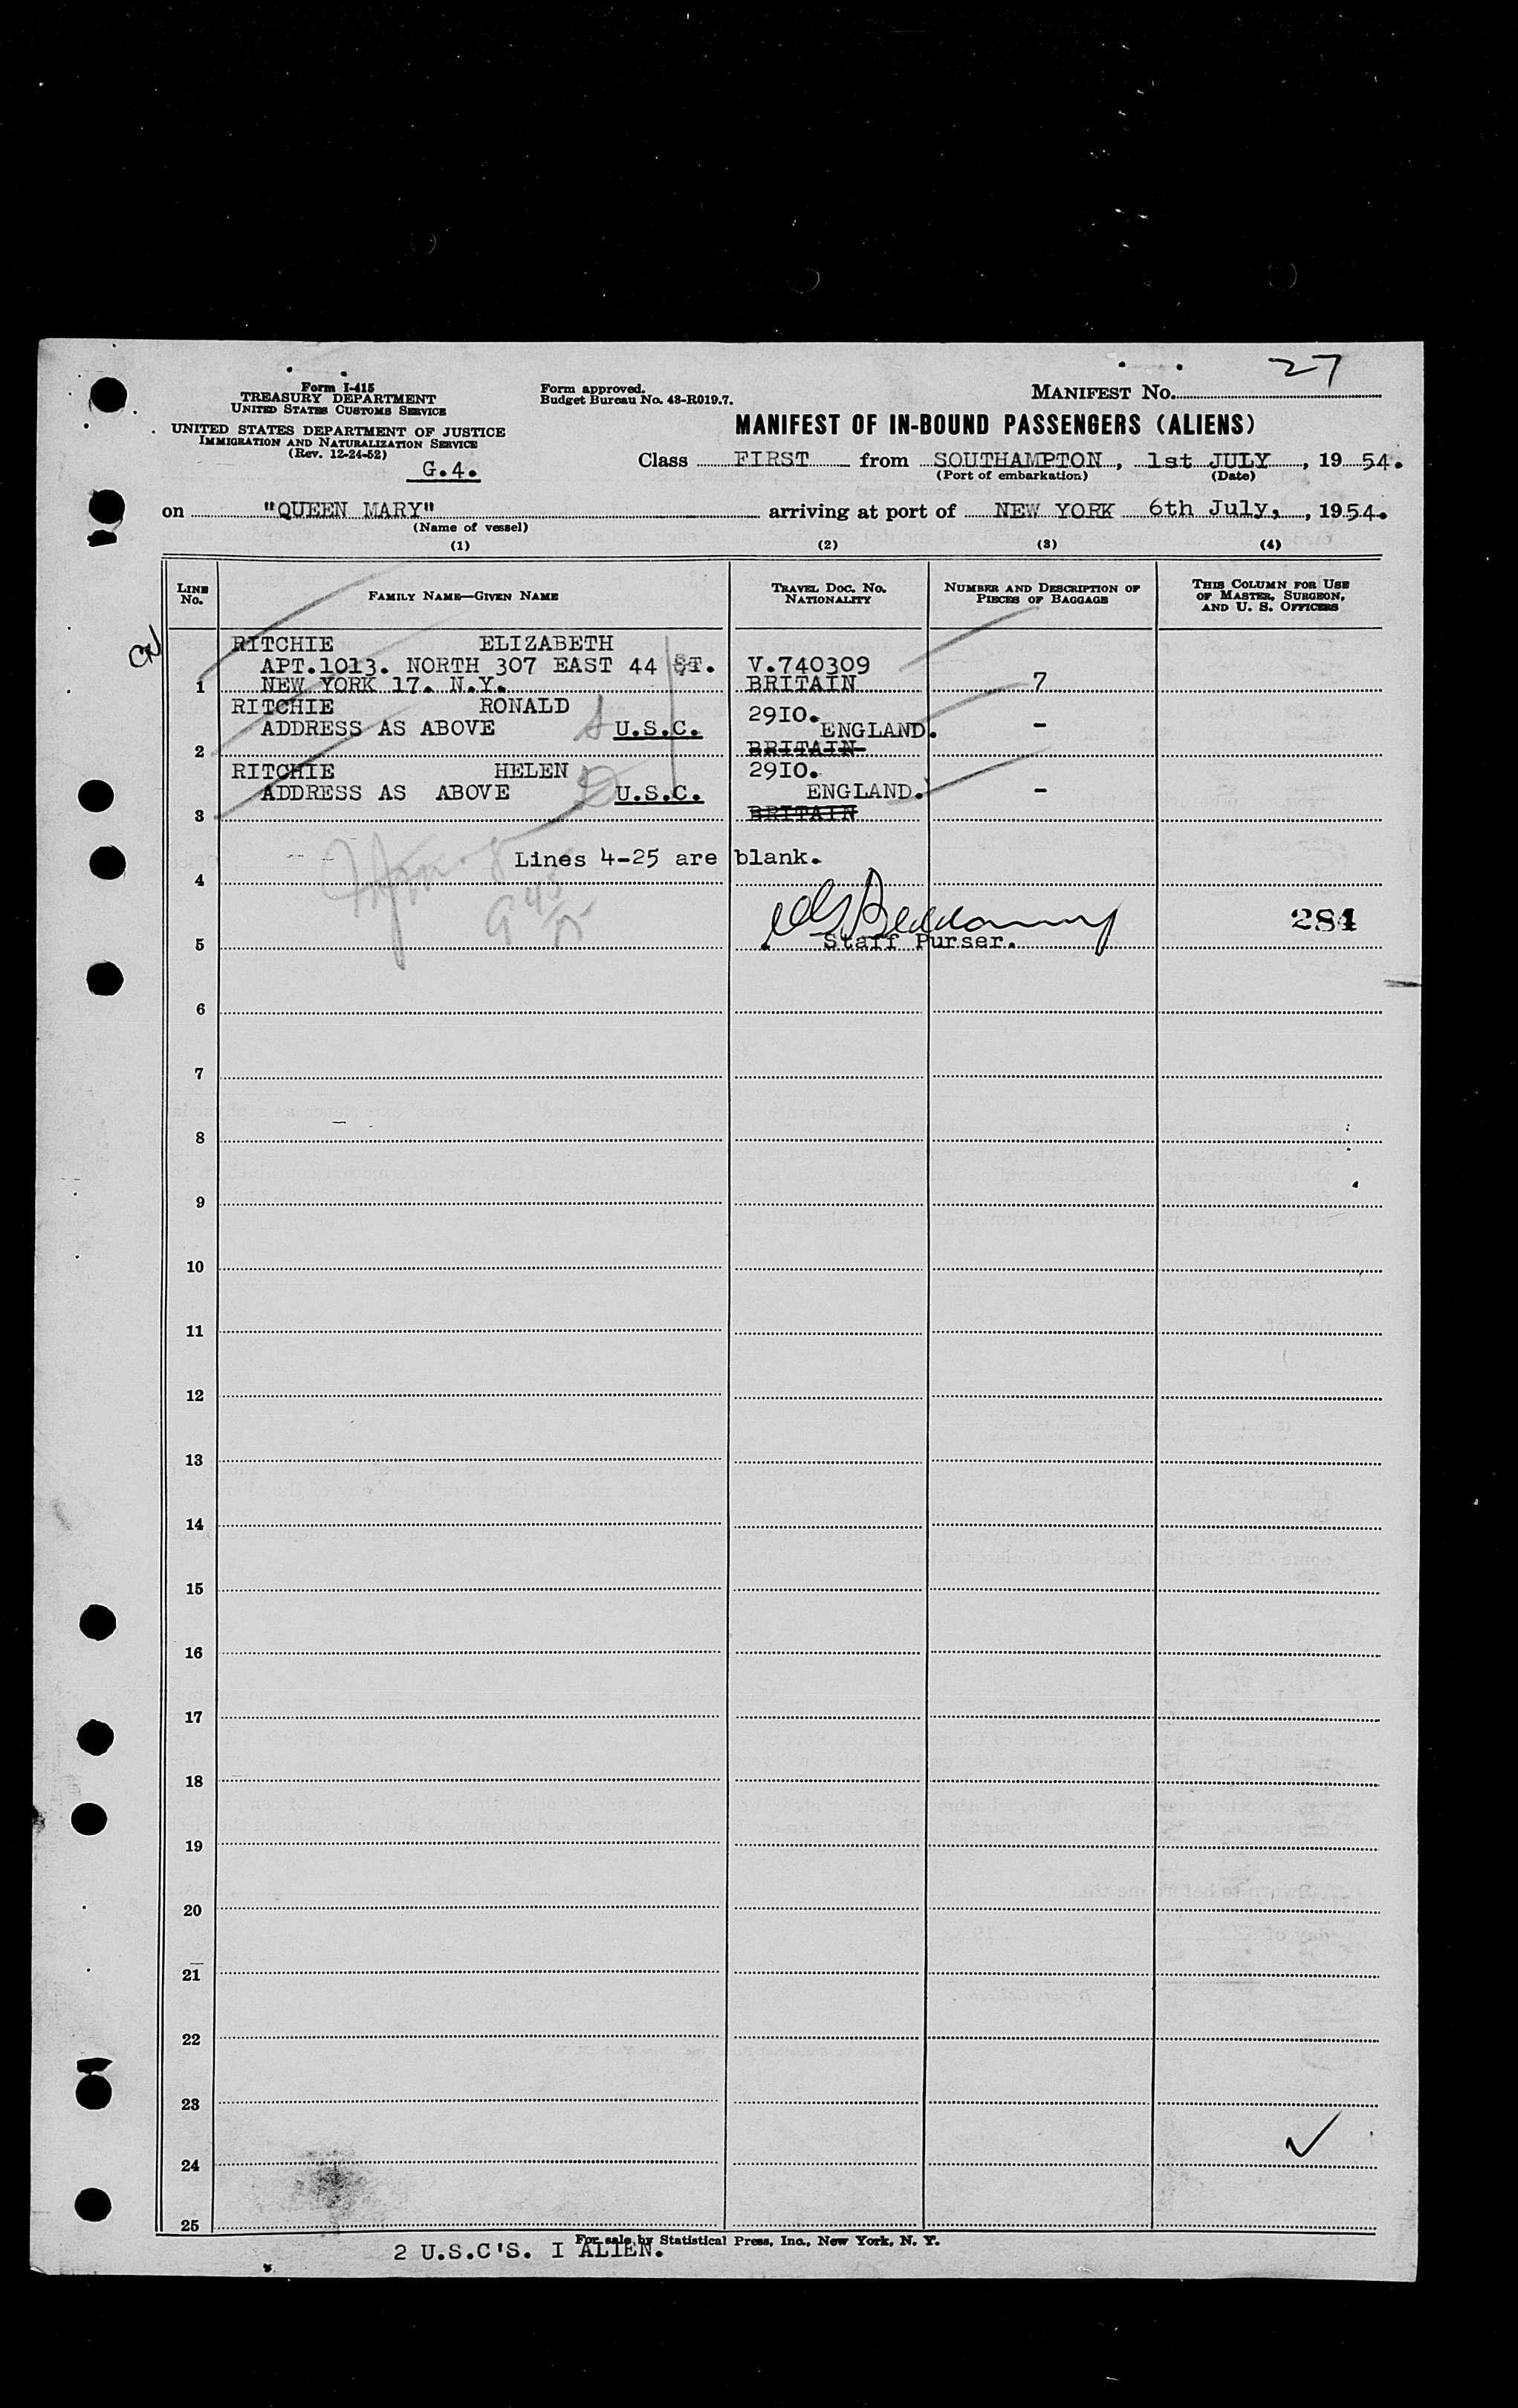 27
Form I-415
TREASURY DEPARTMENT
UNITED STATES CUSTOMS SERVICE
UNITED STATES DEPARTMENT OF JUSTICE
IMMIGRATION AND NATURALIZATION SERVICE
(Rev. 12-24-52)
G.4.
Form approved.
Budget Bureau No. 43-R019.7.
MANIFEST NO.
MANIFEST OF IN-BOUND PASSENGERS (ALIENS)
Class FIRST from SOUTHAMPTON, 1st JULY, 19 54.
(Port of embarkation) (Date)
on "QUEEN MARY" arriving at port of NEW YORK 6th July, , 1954.
(Name of vessel)
(1) (2) (3) (4)
LINE No.
FAMILY NAME—GIVEN NAME
TRAVEL DOC. NO. NATIONALITY
NUMBER AND DESCRIPTION OF PIECES OF BAGGAGE
THIS COLUMN FOR USE OF MASTER, SURGEON, AND U. S. OFFICERS
RITCHIE ELIZABETH
APT.1013. NORTH 307 EAST 44 ST. V.740309
1 NEW YORK 17. N.Y. BRITAIN 7
RITCHIE RONALD 29IO.
ADDRESS AS ABOVE U.S.C. ENGLAND. -
2 BRITAIN
RITCHIE HELEN 29IO.
ADDRESS AS ABOVE U.S.C. ENGLAND. -
3 BRITAIN
Lines 4-25 are blank.
4
284
5 Staff Purser.
6
7
8
9
10
11
12
13
14
15
16
17
18
19
20
21
22
23
24
25
For sale by Statistical Press, Inc., New York, N. Y.
2 U.S.C'S. I ALIEN.